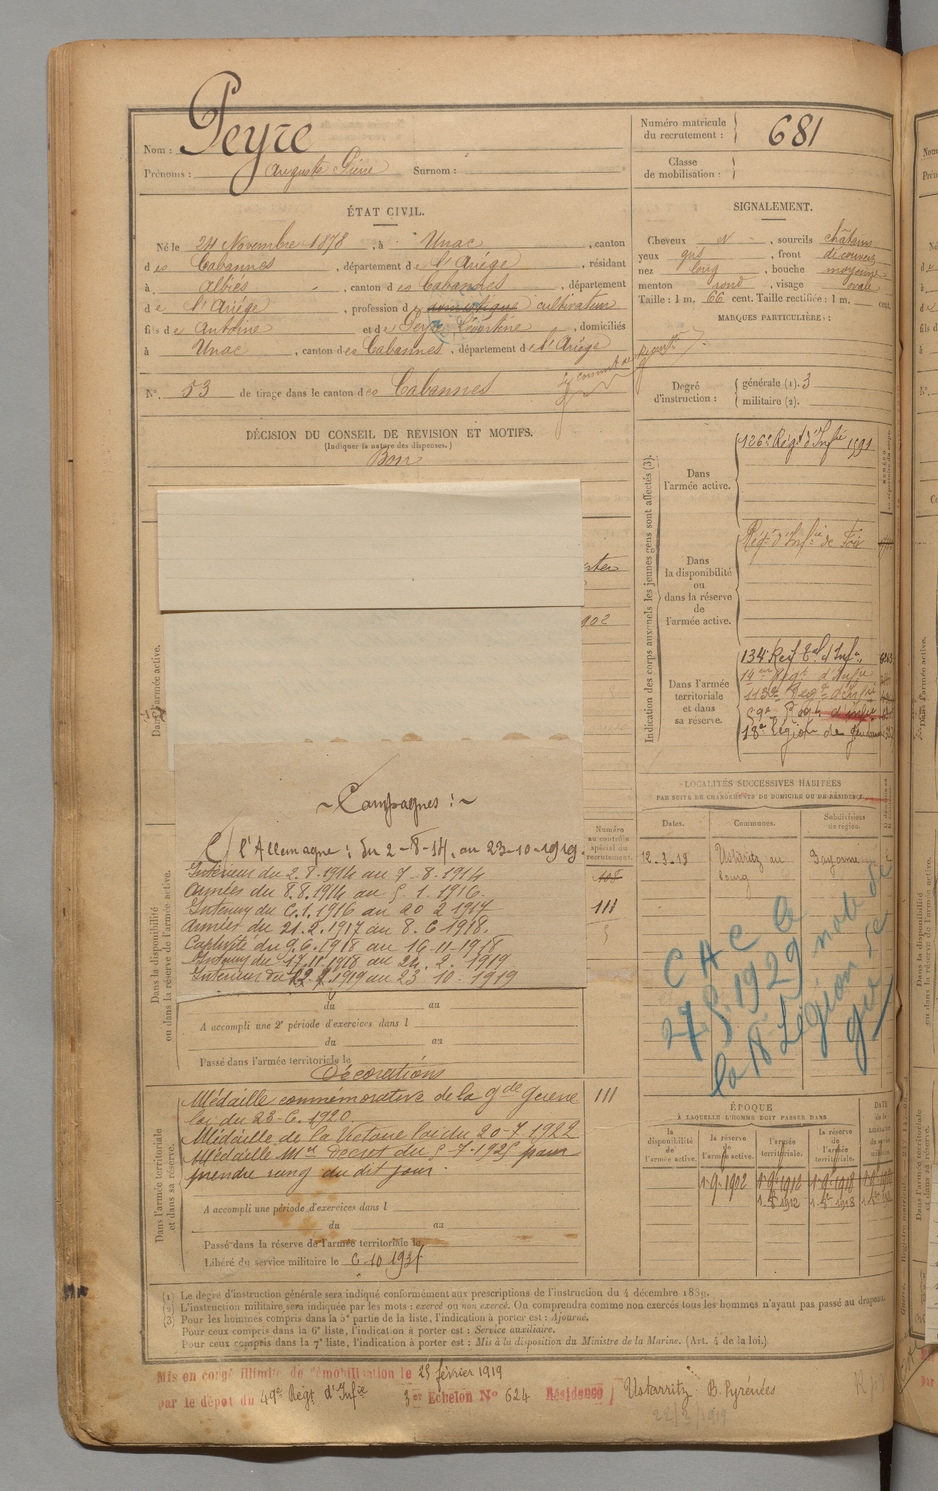 Nom : Peyre
Prénoms : Auguste Pierre Surnom :
Numéro matricule du recrutement : 681
Classe de mobilisation :
ÉTAT CIVIL.
Né le 24 Novembre 1878, à Unac, canton
des Cabannes, département de l'Ariége, résidant
à Albiés, canton des Cabannes, département
de l'Ariége, profession de domestique cultivateur
fils de Antoine et de Peyre, domiciliés
à Unac, canton des Cabannes, département de l'Ariége
N°. 53 de tirage dans le canton des Cabannes
DÉCISION DU CONSEIL DE RÉVISION ET MOTIFS.
(Indiquer la nature des dispenses.)
Bon
SIGNALEMENT.
Cheveux, sourcils châtains
yeux gris, front découvert
nez long, bouche moyenne
menton rond, visage ovale
Taille : 1 m. 66 cent. Taille rectifiée : 1 m. cent.
MARQUES PARTICULIÈRES :
Degré d'instruction : générale (1). 3
militaire (2).
Indication des corps auxquels les jeunes gens sont affectés (3).
Dans l'armée active.
126e Régt d'Infie 1991
Dans la disponibilité ou dans la réserve de l'armée active.
Régt d'Infie de Foix
Dans l'armée territoriale et dans sa réserve.
134 Regt tal d'Infie
14me Régt d'Infie
113e Regt d'Infie
18e Légion de gendarmerie
LOCALITÉS SUCCESSIVES HABITÉES
PAR SUITE DE CHANGEMENTS DE DOMICILE OU DE RÉSIDENCE.
Dates. Communes. Subdivisions de région.
12-3-19 Ustaritz au bourg Bayonne
CACO
27 5 1929
la Légion
Dans l'armée active.
902
~ Campagnes : ~
C/ l'Allemagne : du 2-8-14, au 23-10-1919.
Intérieur du 2.8.1914 au 7-8-1914
Armées du 8.8.1914 au 5.1.1916.
Intérieur du 6.1.1916 au 20 2 1917
Armées du 21.2.1917 au 8.6 1918.
Captivité du 9.6.1918 au 16-11-1918
Intérieur du 17.11.1918 au 24. 2. 1919
Intérieur du 1919 au 23 10 - 1919
Numéro au contrôle spécial du recrutement.
108
111
Dans la disponibilité ou dans la réserve de l'armée active.
du au
A accompli une 2e période d'exercices dans l
du au
Passé dans l'armée territoriale le
Décorations
Médaille commémorative de la gde guerre
loi du 23-6-1920
Médaille de la Victoire loi du 20-7 1922
Médaille Mre décret du 5-7-1925 pour
prendre rang du dit jour.
111
Dans l'armée territoriale et dans sa réserve.
A accompli une période d'exercices dans l
du au
Passé dans la réserve de l'armée territoriale le
Libéré du service militaire le 6-10 193
ÉPOQUE
À LAQUELLE L'HOMME DOIT PASSER DANS
la disponibilité de l'armée active. la réserve de l'armée active. l'armée territoriale. la réserve de l'armée territoriale.
1-9-1902 1-9-1912 1-9-1918
(1) Le degré d'instruction générale sera indiqué conformément aux prescriptions de l'instruction du 4 décembre 1889.
(2) L'instruction militaire sera indiquée par les mots : exercé ou non exercé. On comprendra comme non exercés tous les hommes n'ayant pas passé au drapeau.
(3) Pour les hommes compris dans la 5e partie de la liste, l'indication à porter est : Ajourné.
Pour ceux compris dans la 6e liste, l'indication à porter est : Service auxiliaire.
Pour ceux compris dans la 7e liste, l'indication à porter est : Mis à la disposition du Ministre de la Marine. (Art. 4 de la loi.)
Mis en congé illimité de démobilisation le 23 février 1919
par le dépôt du 49e Régt d'Infie 3e Echelon N° 624 Résidence Ustarritz B. Pyrénées
22/3/1919